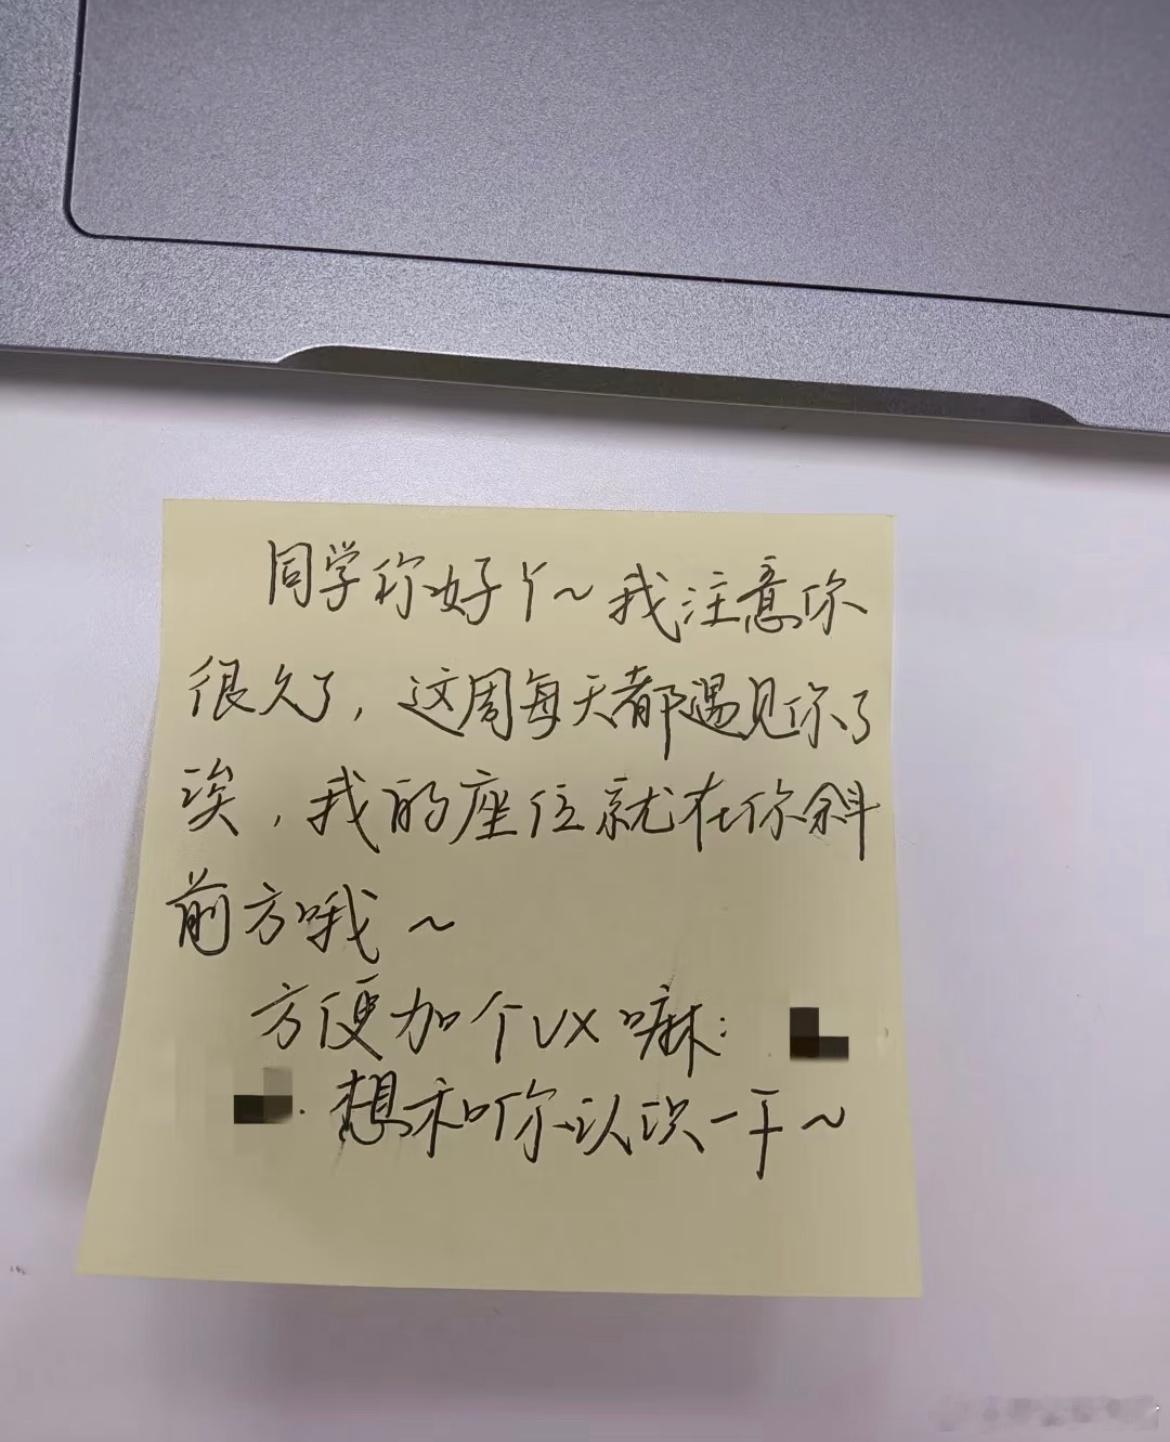 同学你好丫~我注意你
很久了，这周每天都遇见你了
诶，我的座位就在你斜
前方哦~
方便加个VX嘛：
想和你认识一下~